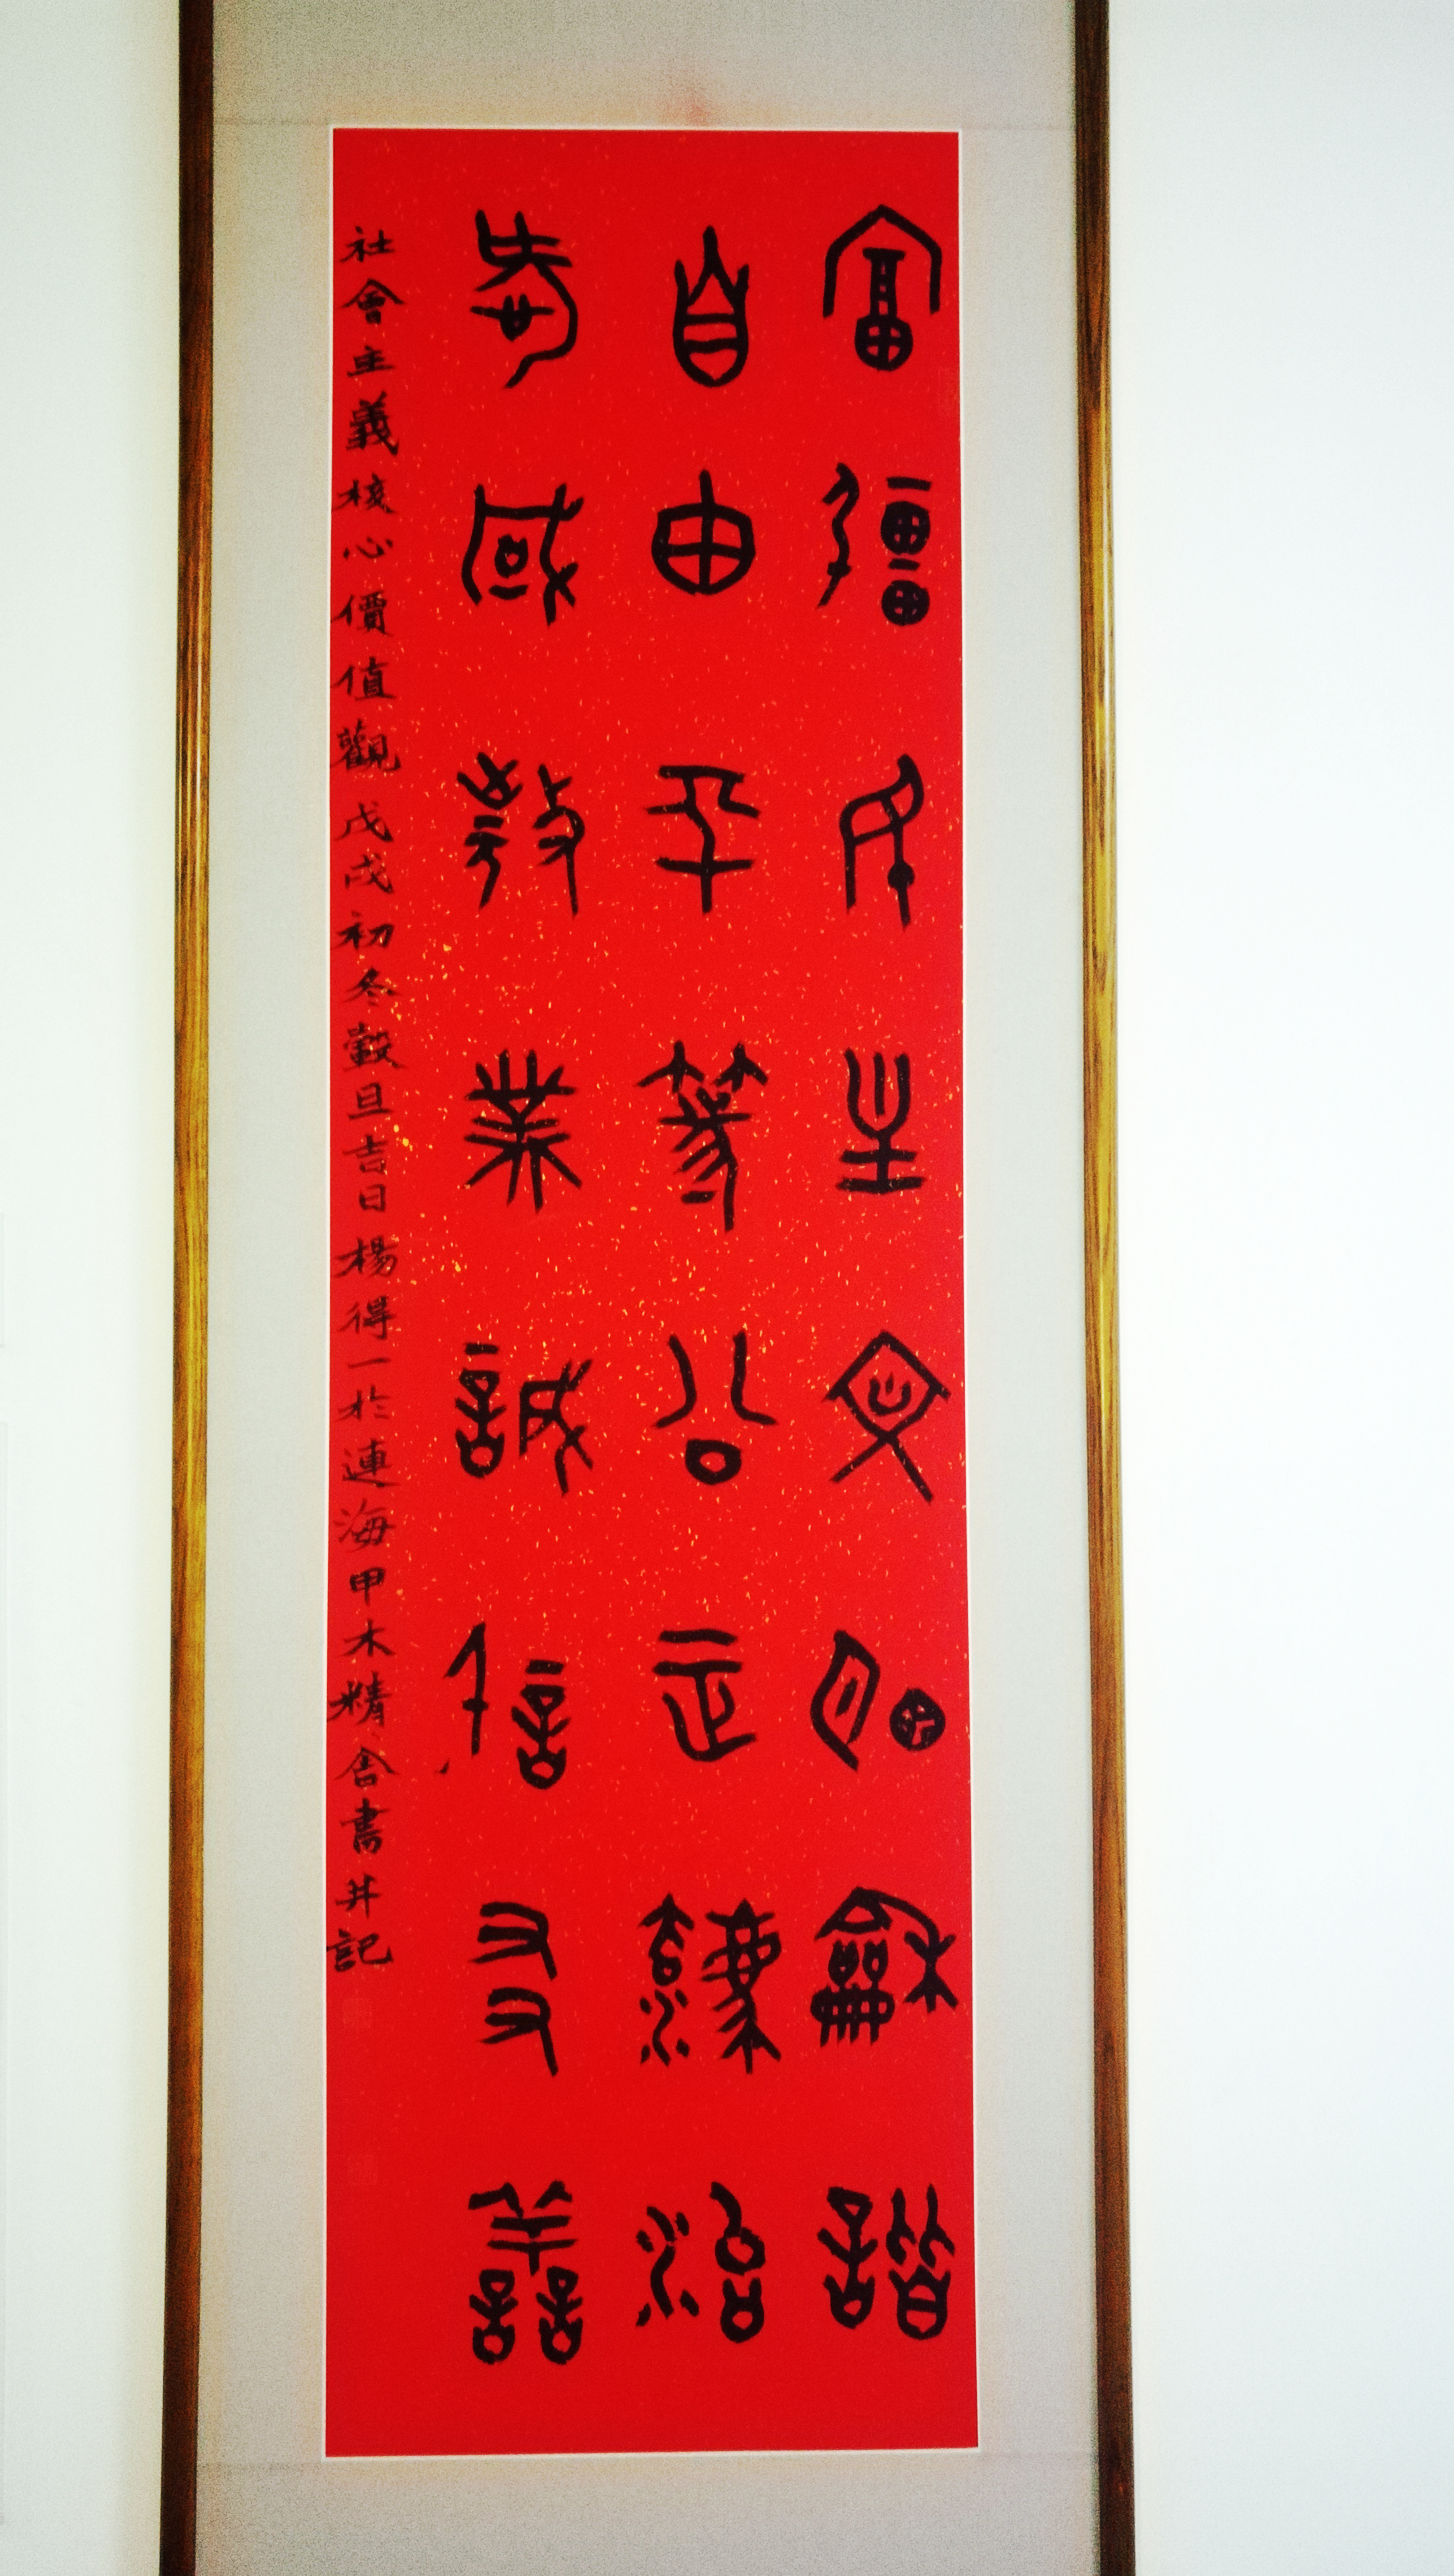 富彊民主文明龢諧
自由平等公正法治
愛國敬業誠信友善
社會主義核心價值觀戊戌初冬穀旦吉日楊得一於連海甲木精舍書并記